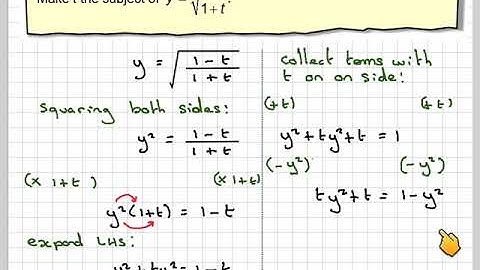 Make t the subject of y = √1+t.
y = √(1-t / 1+t)
squaring both sides:
y² = 1-t / 1+t
(x 1+t) (x 1+t)
y²(1+t) = 1-t
expand LHS:
y²+ty² = 1-t
collect terms with
t on on side:
(+t) (+t)
y²+ty²+t = 1
(-y²) (-y²)
ty²+t = 1-y²